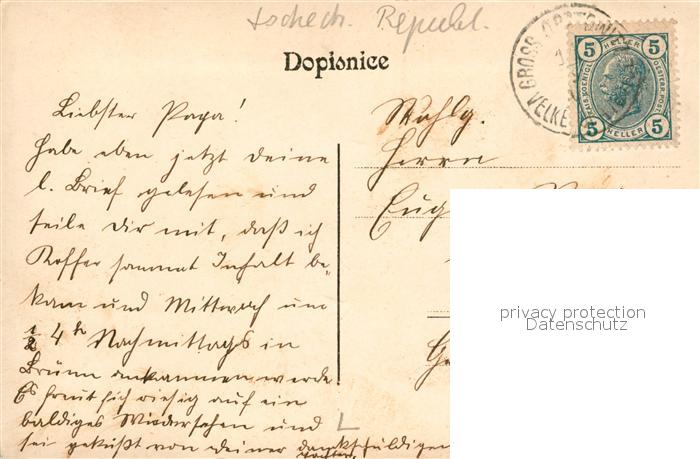 tschech. Republ.
Dopisnice
GROSS
VELKE
5 HELLER 5
KAIS. KOENIGL. OESTERR. POST
5 HELLER 5
Liebster Papa!
Habe eben jetzt deine
l. Brief gelesen und
teile Dir mit, daß ich
Koffer sammt Inhalt be-
kam und Mittwoch um
1/2 4h Nachmittags in
Brünn ankommen werde
Es freut sich riesig auf ein
baldiges Wiedersehen und
sei geküßt von deiner dankschuldigen
Tochter
Wohlg.
Herrn
Eug
L
privacy protection
Datenschutz